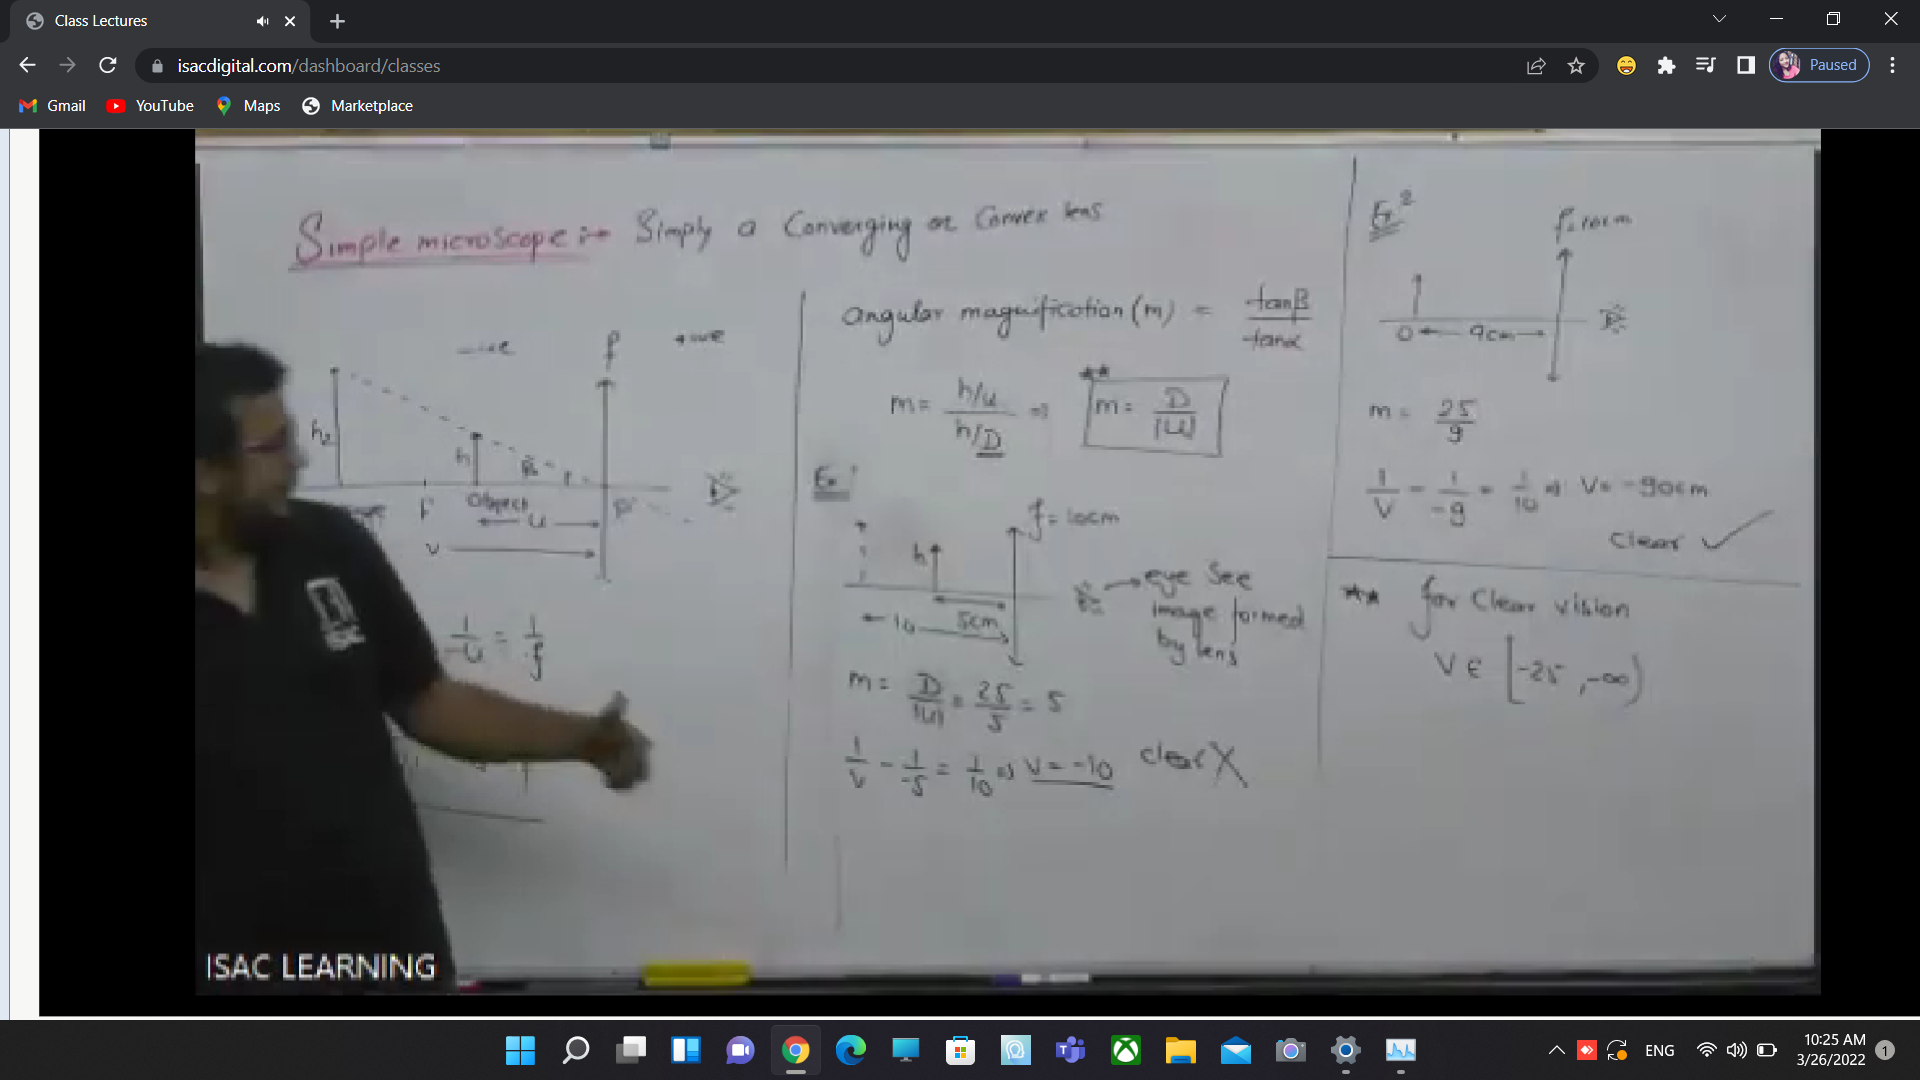 Class Lectures
isacdigital.com/dashboard/classes
Paused
Gmail
YouTube
Maps
Marketplace
Simple microscope :→ Simply a Converging or Convex lens
-ive
f
+ive
h₂
h
F
Object
u
v
1/-u = 1/f
angular magnification (m) = tanβ/tanα
m = (h/u)/(h/D) ⇒ m = D/|u|
Ex¹
f = 10cm
h
5cm
10
eye See
image formed
by lens
m = D/|u| = 25/5 = 5
1/v - 1/-5 = 1/10 ⇒ v = -10 clear X
Ex²
f = 10cm
O
9cm
m = 25/9
1/v - 1/-9 = 1/10 ⇒ v = -90cm
clear ✓
** for Clear vision
V ∈ [-25, -∞)
ISAC LEARNING
ENG
10:25 AM
3/26/2022
1